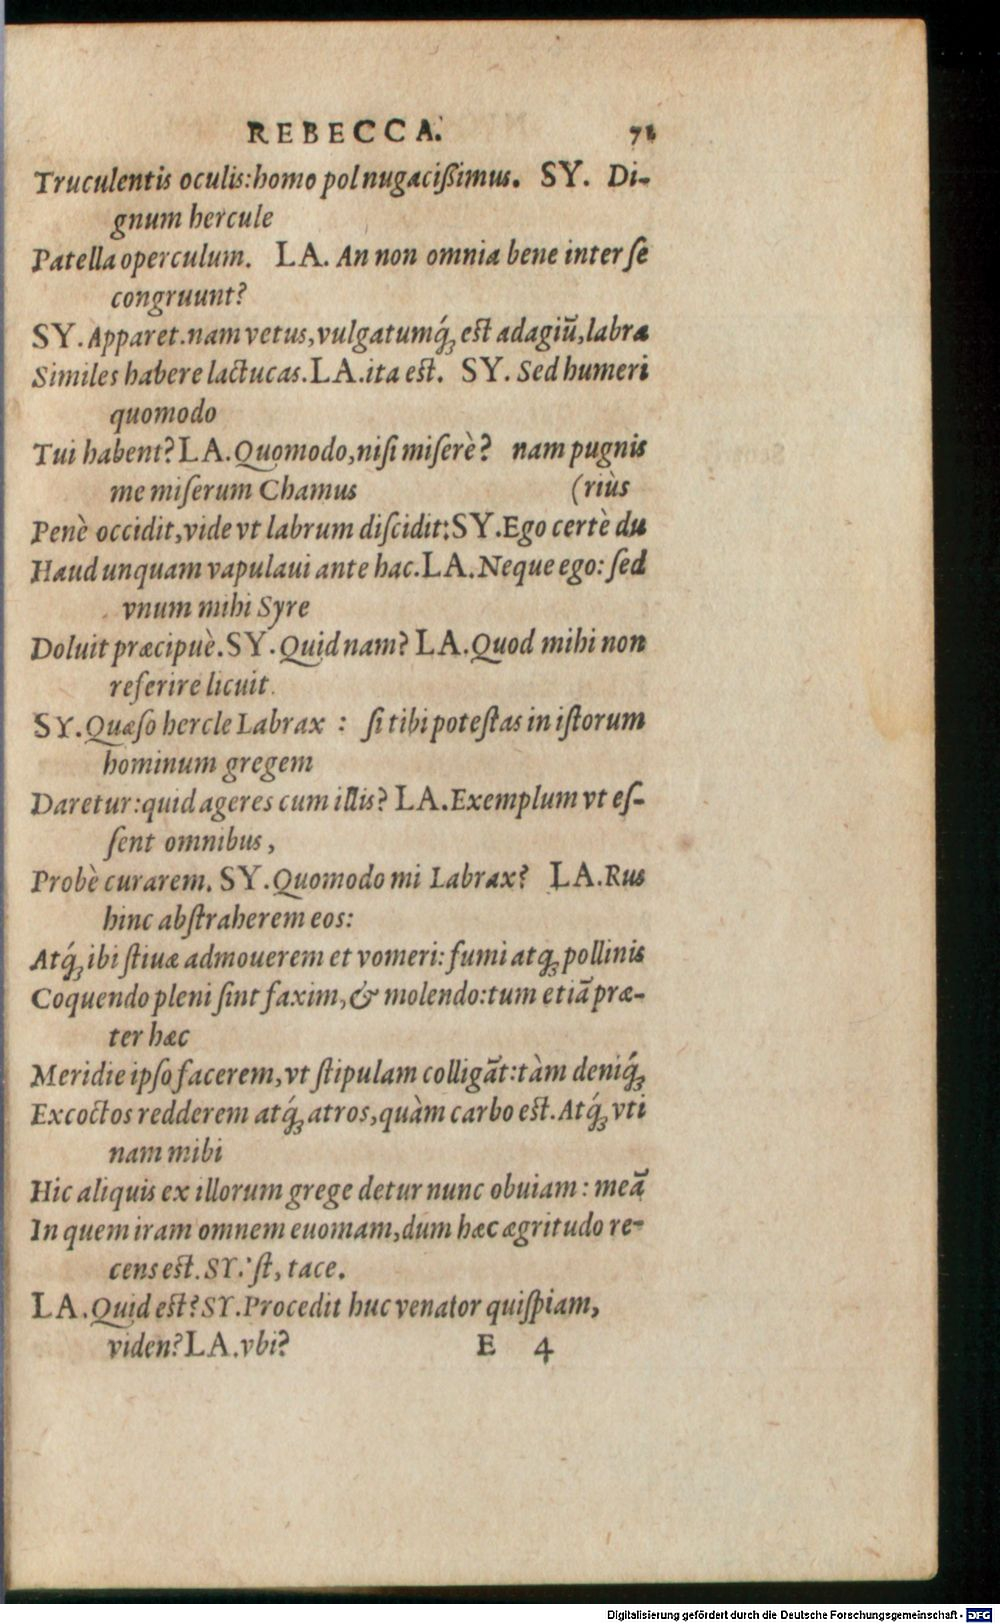 REBECCA. 71
Truculentis oculis: homo pol nugacißimus. SY. Di-
gnum hercule
Patella operculum. LA. An non omnia bene inter ſe
congruunt?
SY. Apparet. nam vetus, vulgatumq́ꝫ est adagiũ, labra
Similes habere lactucas. LA. ita est. SY. Sed humeri
quomodo
Tui habent? LA. Quomodo, niſi miſerè? nam pugnis
me miſerum Chamus (riùs
Penè occidit, vide vt labrum diſcidit: SY. Ego certè du
Haud unquam vapulaui ante hac. LA. Neque ego: ſed
vnum mihi Syre
Doluit præcipuè. SY. Quid nam? LA. Quod mihi non
referire licuit.
SY. Quæſo hercle Labrax : ſi tibi poteſtas in iſtorum
hominum gregem
Daretur: quid ageres cum illis? LA. Exemplum vt eſ-
ſent omnibus,
Probè curarem. SY. Quomodo mi Labrax? LA. Rus
hinc abſtraherem eos:
Atq́ꝫ ibi ſtiuæ admouerem et vomeri: fumi atqꝫ pollinis
Coquendo pleni ſint faxim, & molendo: tum etiã præ-
ter hæc
Meridie ipſo facerem, vt ſtipulam colligãt: tàm deniq́ꝫ
Excoctos redderem atq́ꝫ atros, quàm carbo est. Atq́ꝫ vti
nam mihi
Hic aliquis ex illorum grege detur nunc obuiam: meã
In quem iram omnem euomam, dum hæc ægritudo re-
cens est. SY. ſt, tace.
LA. Quid est? SY. Procedit huc venator quiſpiam,
viden? LA. vbi? E 4
Digitalisierung gefördert durch die Deutsche Forschungsgemeinschaft - DFG